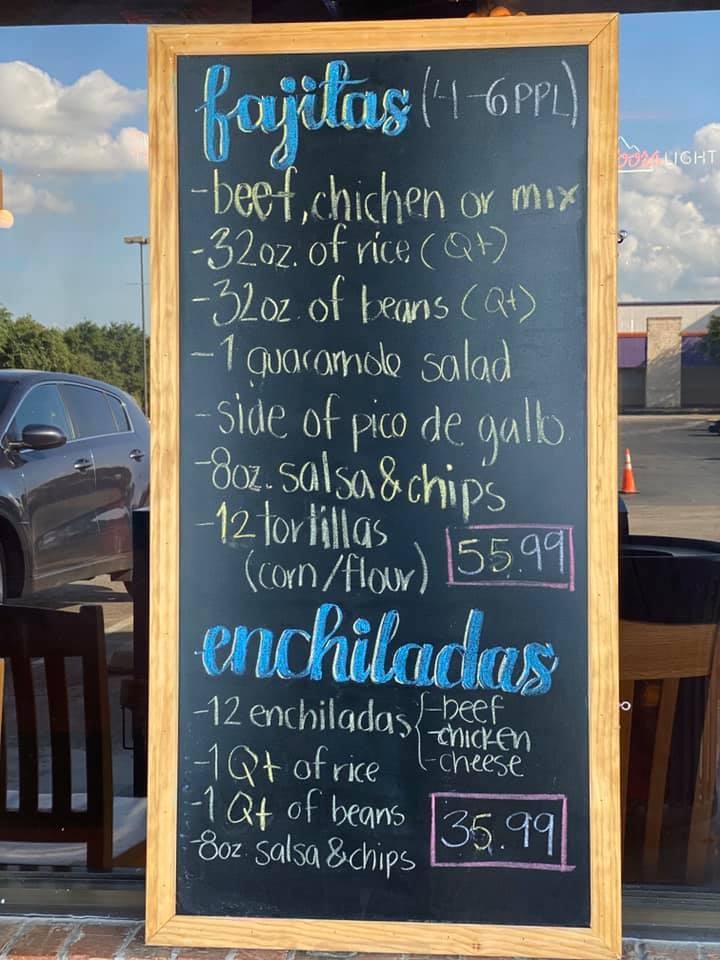 fajitas (4-6PPL)
-beef, chichen or mix
-32oz. of rice (Qt)
-32oz. of beans (Qt)
-1 guacamole salad
-side of pico de gallo
-8oz. salsa & chips
-12 tortillas
(corn/flour) 55.99
enchiladas
-12 enchiladas { -beef
-chicken
-cheese
-1 Qt of rice
-1 Qt of beans
-8oz salsa & chips 35.99
LIGHT